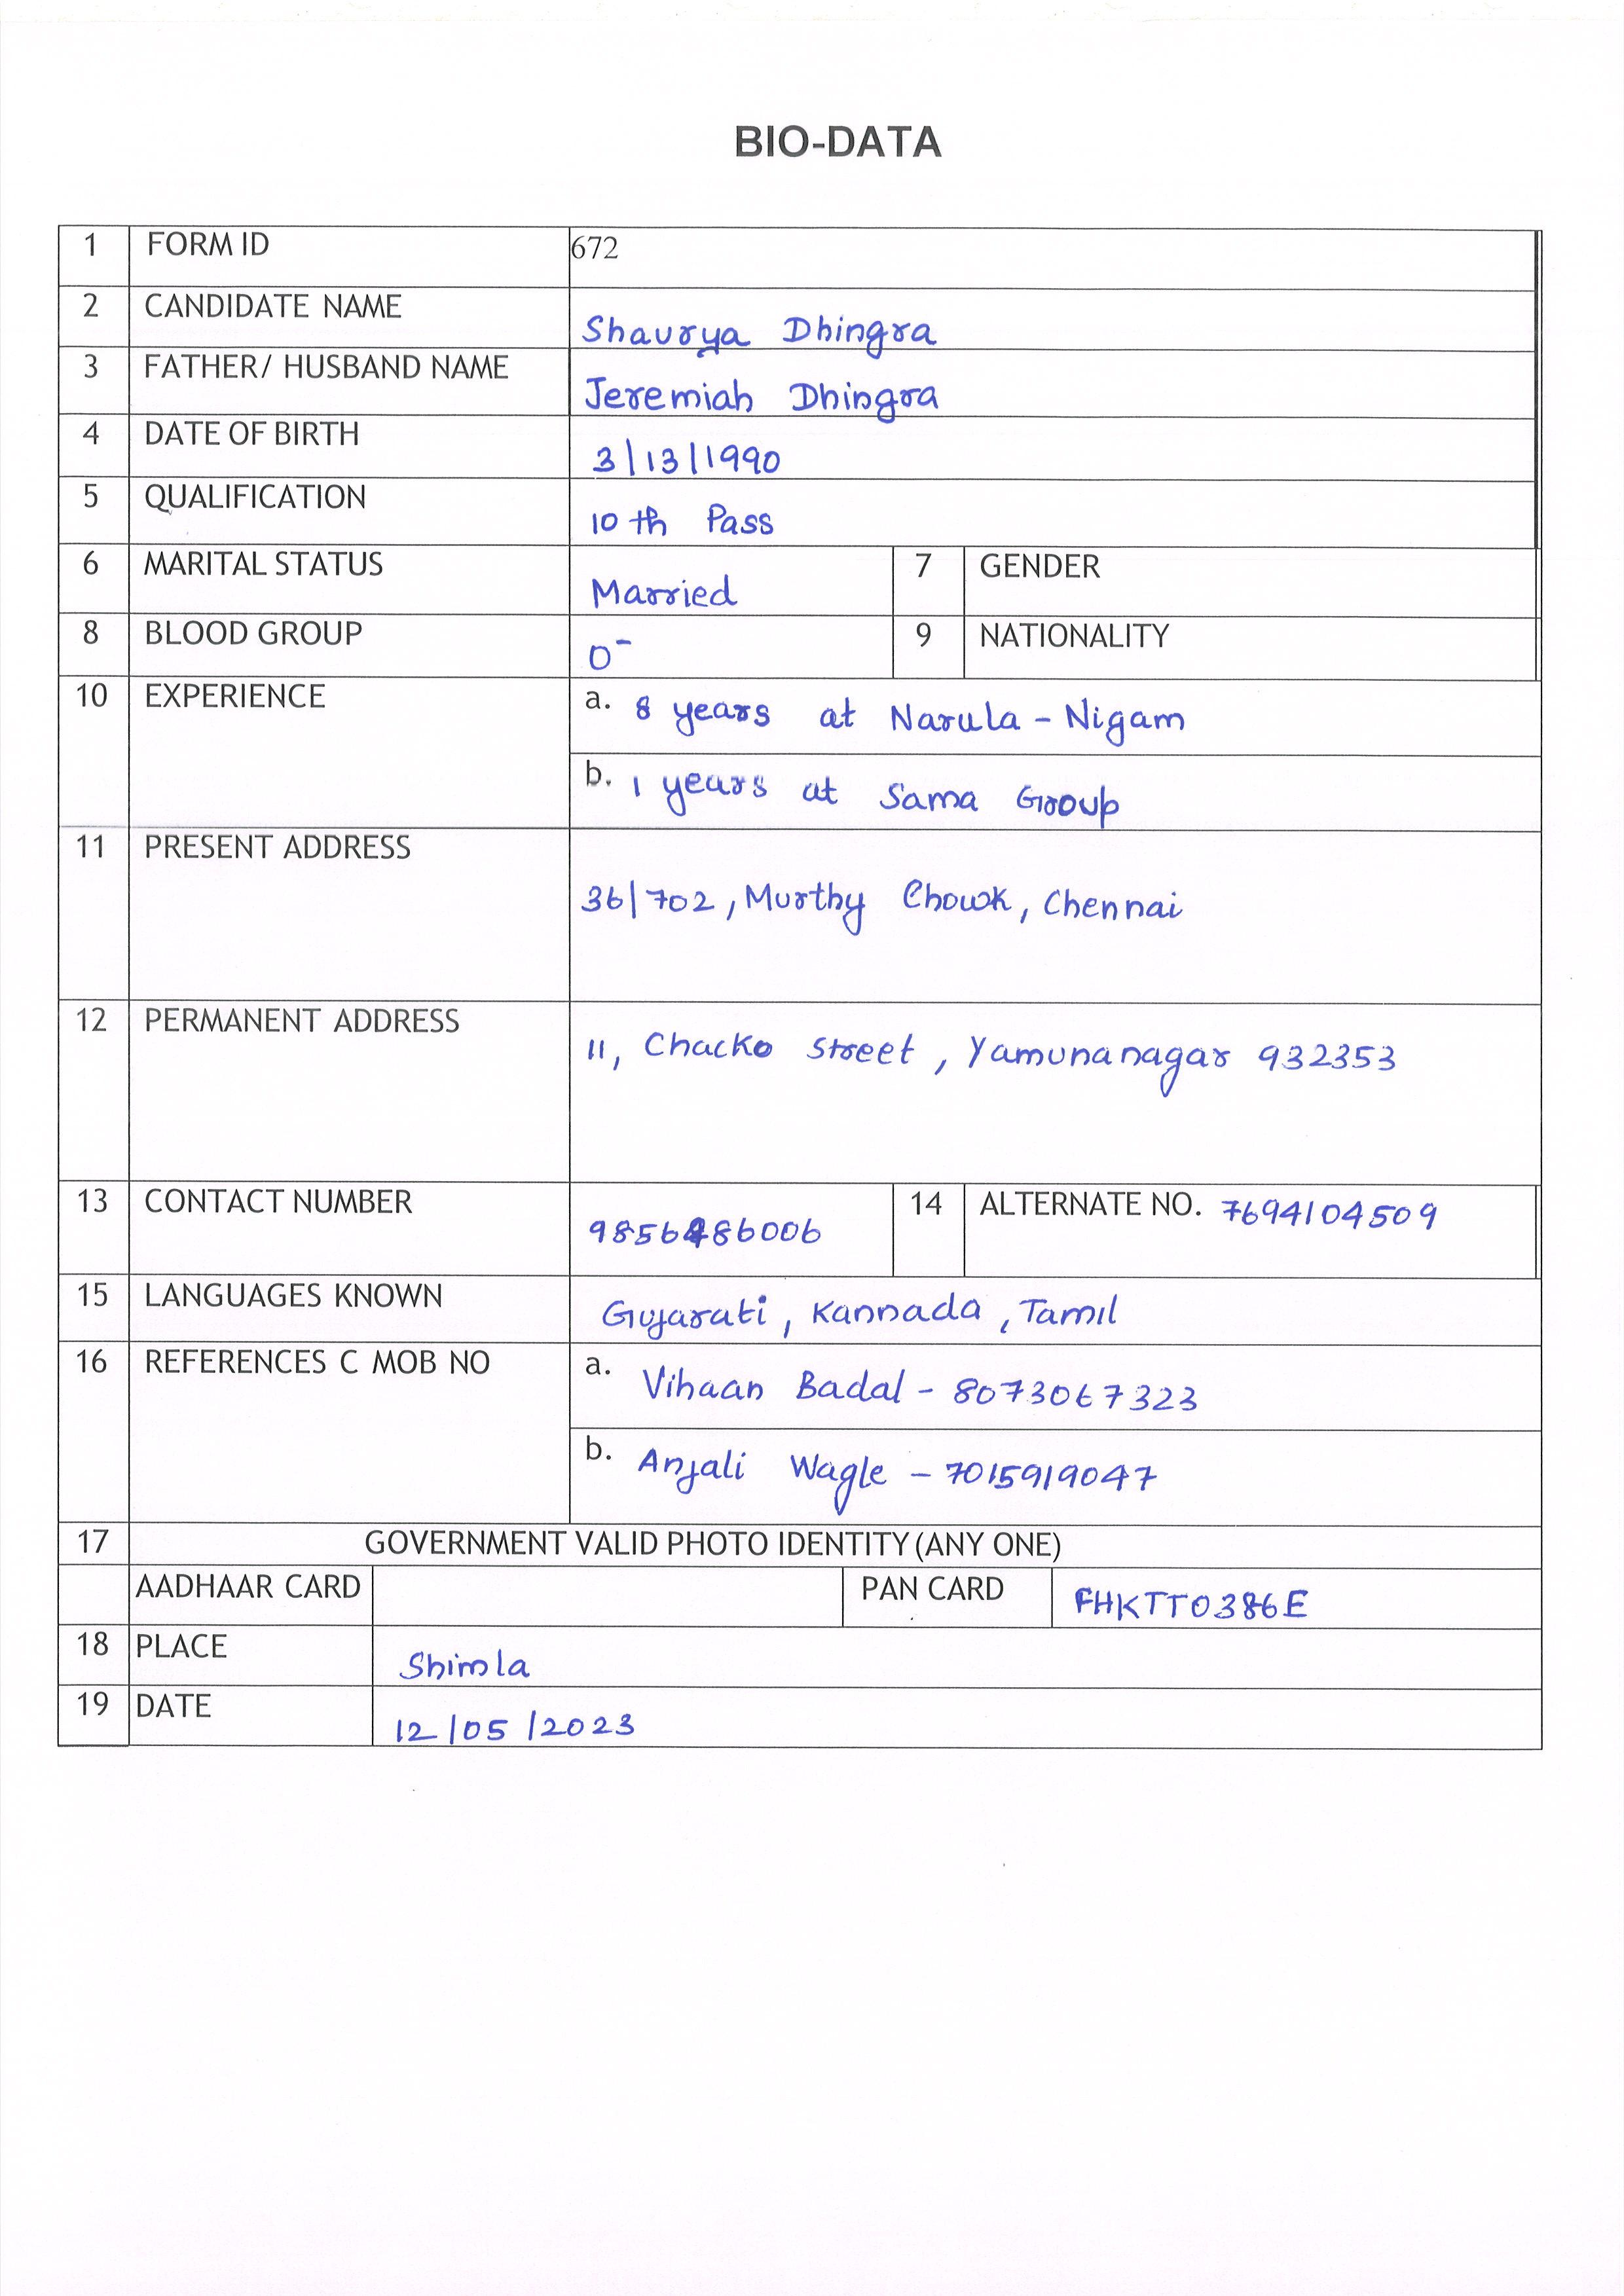 BIO-DATA
1 FORM ID 672
2 CANDIDATE NAME Shaurya Dhingra
3 FATHER/ HUSBAND NAME Jeremiah Dhingra
4 DATE OF BIRTH 3/13/1990
5 QUALIFICATION 10th Pass
6 MARITAL STATUS Married 7 GENDER
8 BLOOD GROUP O- 9 NATIONALITY
10 EXPERIENCE a. 8 years at Narula-Nigam
b. 1 years at Sama Group
11 PRESENT ADDRESS
36/702, Murthy Chowk, Chennai
12 PERMANENT ADDRESS
11, Chacko Street, Yamunanagar 932353
13 CONTACT NUMBER 9856486006 14 ALTERNATE NO. 7694104509
15 LANGUAGES KNOWN Gujarati, Kannada, Tamil
16 REFERENCES C MOB NO a. Vihaan Badal - 8073067323
b. Anjali Wagle - 7015919047
17 GOVERNMENT VALID PHOTO IDENTITY (ANY ONE)
AADHAAR CARD PAN CARD FHKTT0386E
18 PLACE Shimla
19 DATE 12/05/2023